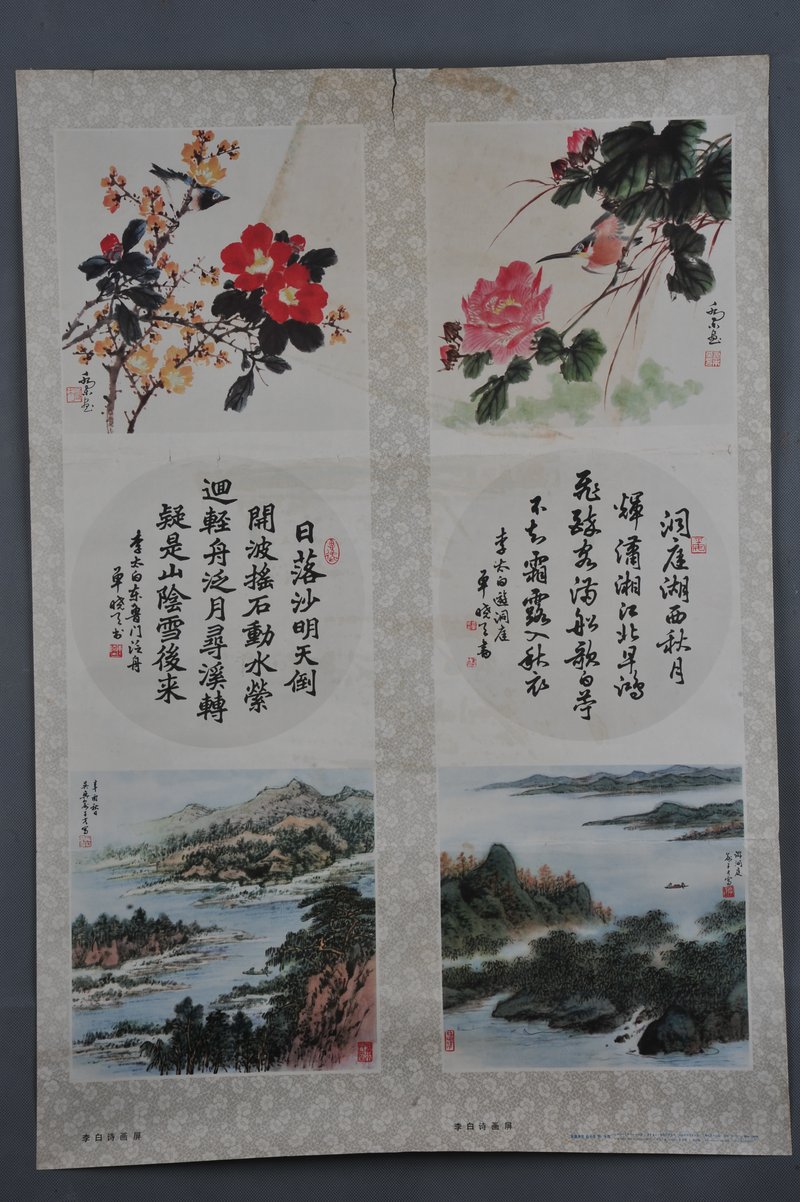 洞庭湖西秋月
輝瀟湘江北早鴻
飛醉客滿船歌白苧
不知霜露入秋衣
李太白遊洞庭
單曉天書
日落沙明天倒
開波搖石動水縈
迴輕舟泛月尋溪轉
疑是山陰雪後来
李太白东魯門泛舟
單曉天书
辛酉秋日
游洞庭
李白诗画屏
李白诗画屏